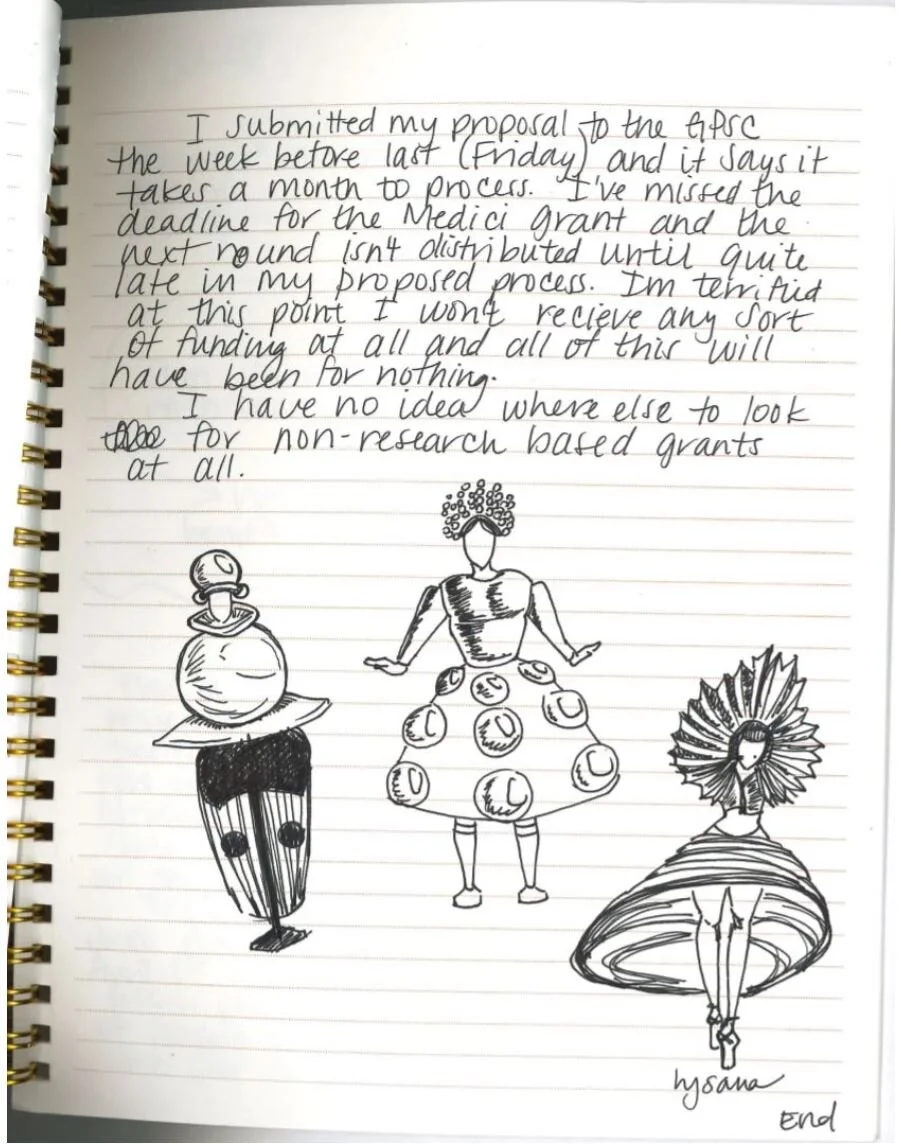 I submitted my proposal to the GPSC
the week before last (Friday) and it says it
takes a month to process. I've missed the
deadline for the Medici grant and the
next round isn't distributed until quite
late in my proposed process. Im terrified
at this point I won't recieve any sort
of funding at all and all of this will
have been for nothing.
I have no idea where else to look
for non-research based grants
at all.
End